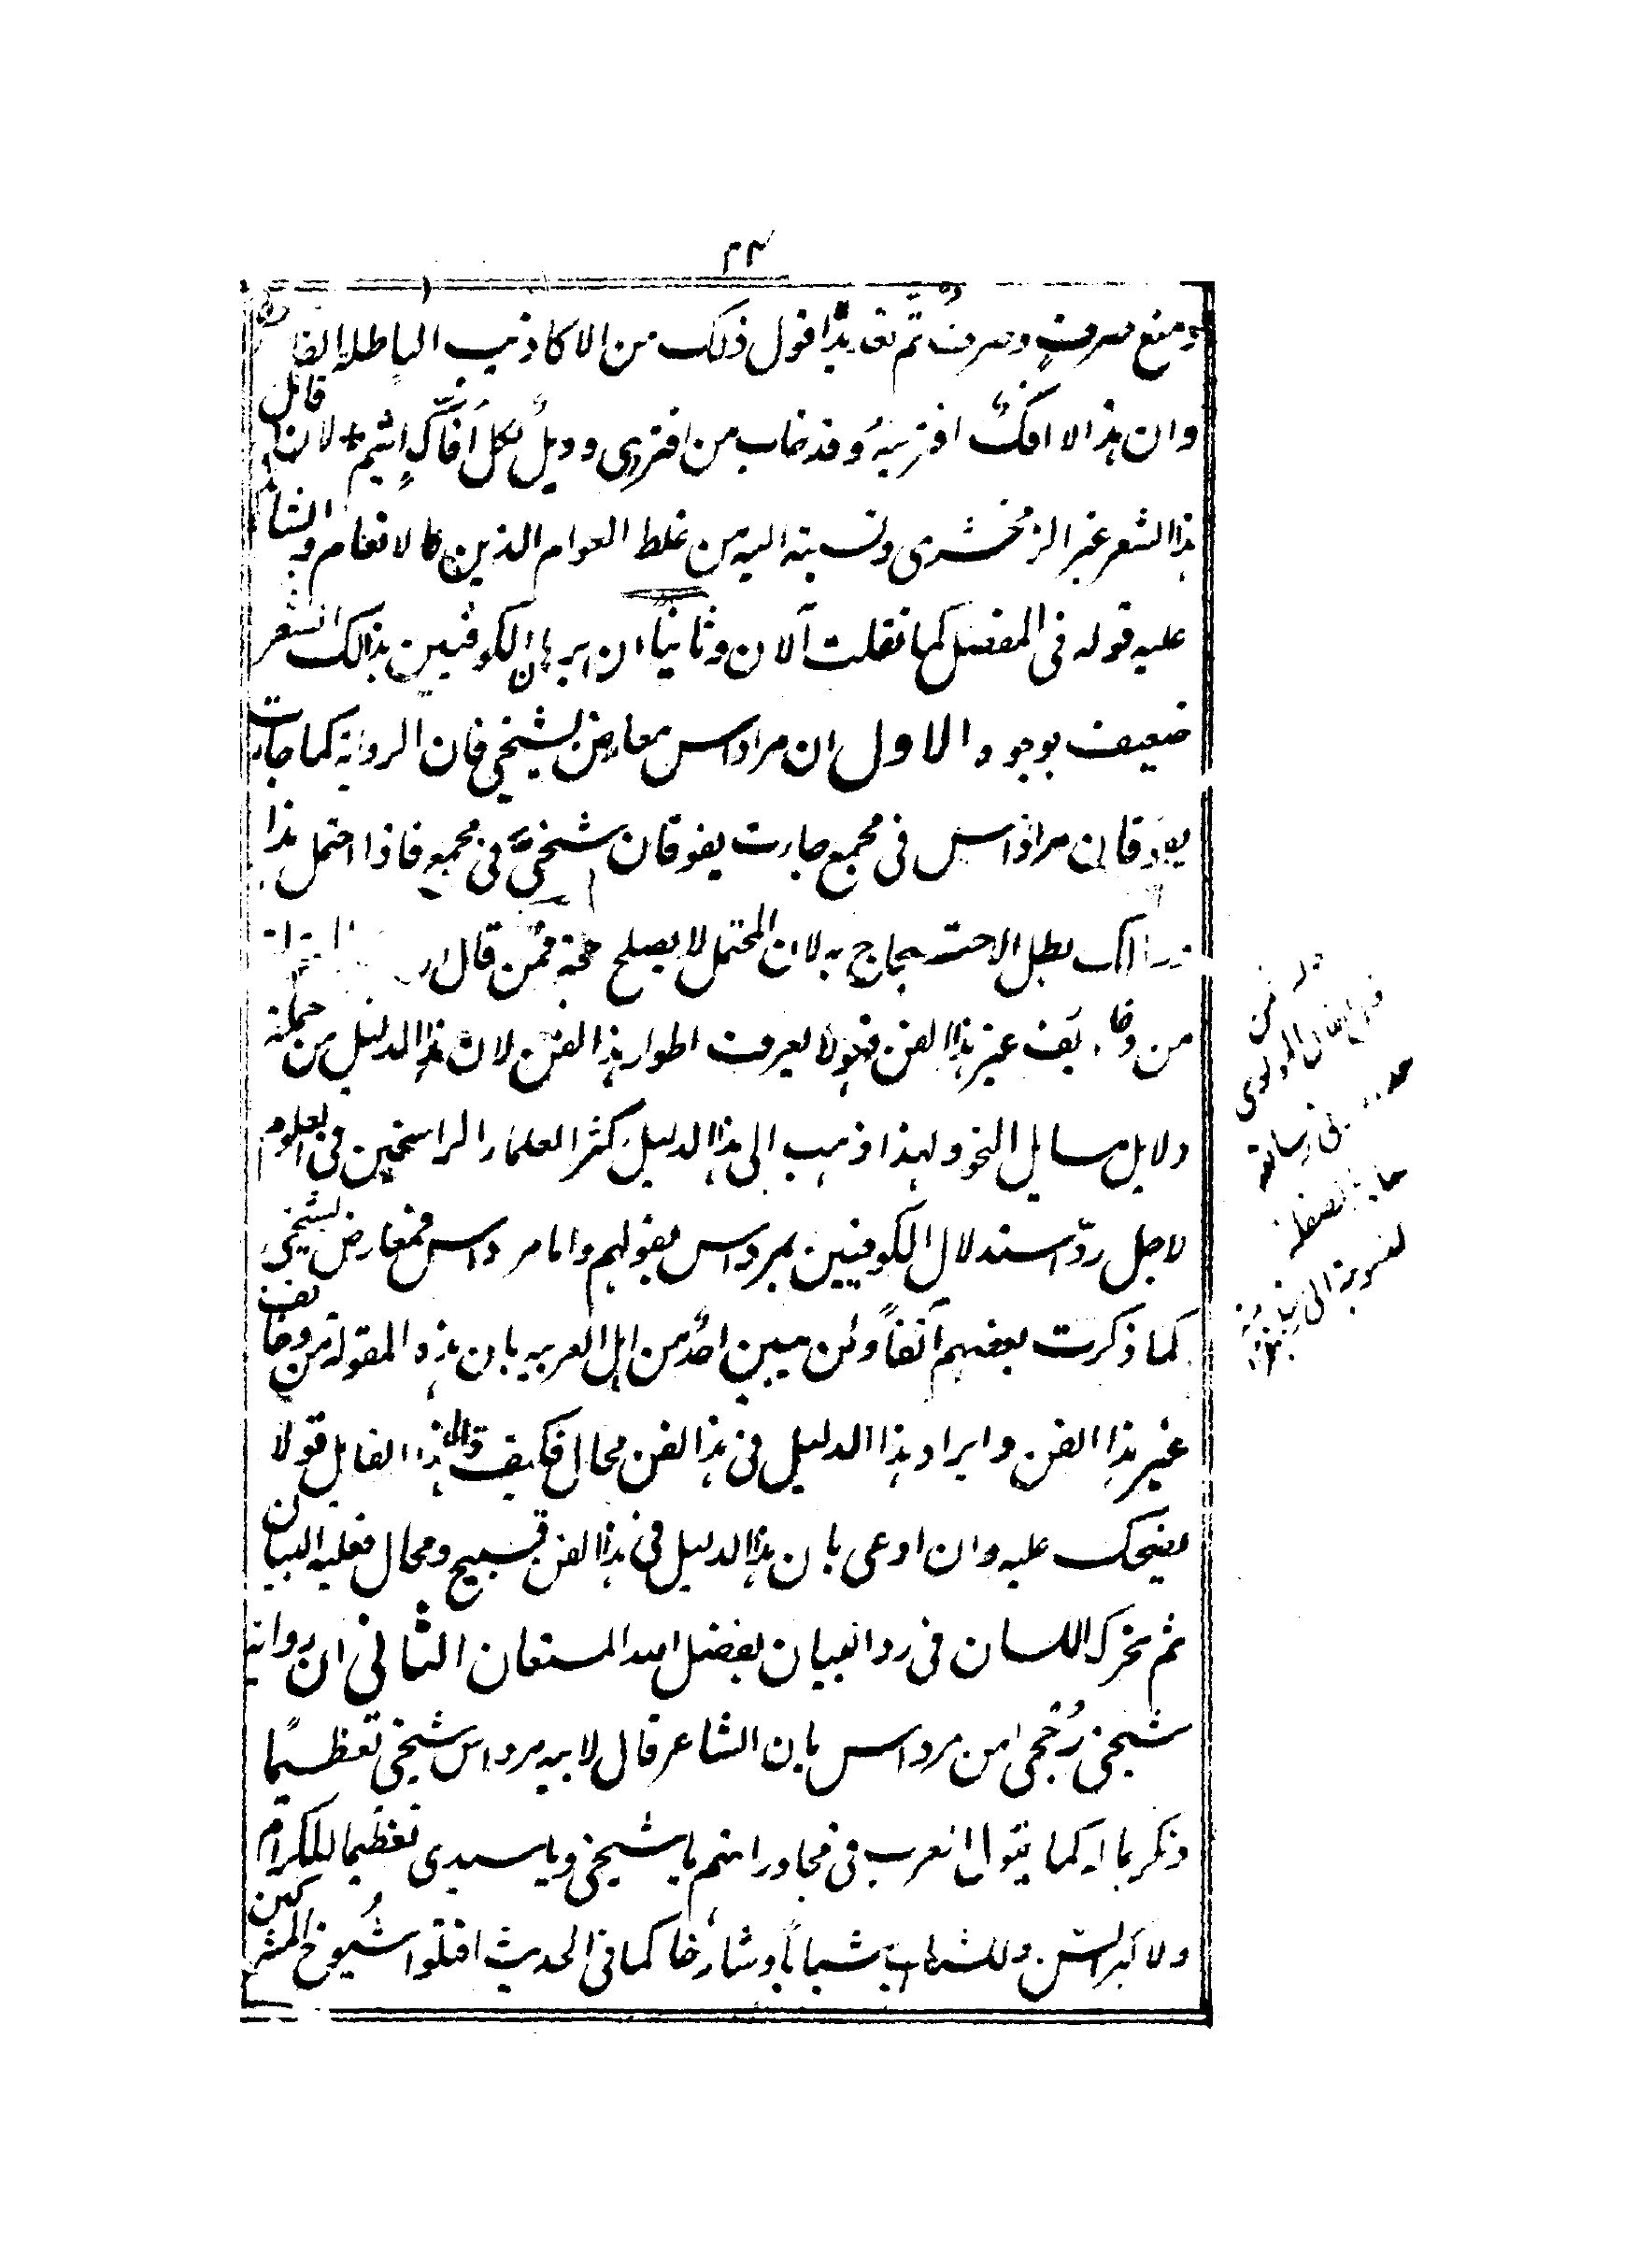 ٢٣
ومنع صرفٍ وصرف ثم تعديدًا قول ذلك من الاكاذيب الباطلة
وان هذا الا افكٌ افتريه وقد خاب من افترى وويلٌ لكل افّاكٍ اثيم لان قائل
هذا الشعر غير الزمخشرى ونسبته اليه من غلط العوام الذين كالانعام والشاهد
عليه قوله فى المفصل كما نقلت آلان وثانياً ان برهان الكوفيين بذالك الشعر
ضعيف بوجوه الاول ان مرداس معارض لشيخى فان الرواية كما جاءت
يفوقان مرداس فى مجمع جاءت يفوقان شيخى فى مجمع فاذا احتمل هذا
بطل الاحتجاج به لان المحتمل لا يصلح حجة فمن قال
من وظايف غير هذا الفن فهو لا يعرف اطوار هذا الفن لان هذا الدليل من جملة
دلايل مسايل النحو ولهذا ذهب الى هذا الدليل اكثر العلماء الراسخين فى العلوم
لاجل ردّ استدلال الكوفيين بمرداس بقولهم واما مرداس فمعارض لشيخى
كما ذكرت بعضهم آنفاً ولن يبين احدٌ من اهل العربيه بان هذه المقولة من وظايف
غير هذا الفن وايراد هذا الدليل فى هذا الفن محال فكيف قال هذا القايل قولا
يضحك عليه وان ادعى بان هذا الدليل فى هذا الفن قبيح ومحال فعليه البيان
ثم تحرك اللسان فى رد البيان بفضل الله المستعان الثانى ان رواية
شيخى رُجّحى من مرداس بان الشاعر قال لابيه مرداس شيخى تعظيمًا
وتكريما له كما يقول العرب فى محاوراتهم يا شيخى ويا سيدى تعظيما للكرام
ولاكبر السّن وللشباب شباباً وشارخا كما فى الحديث اقتلوا شُيوخ المشركين